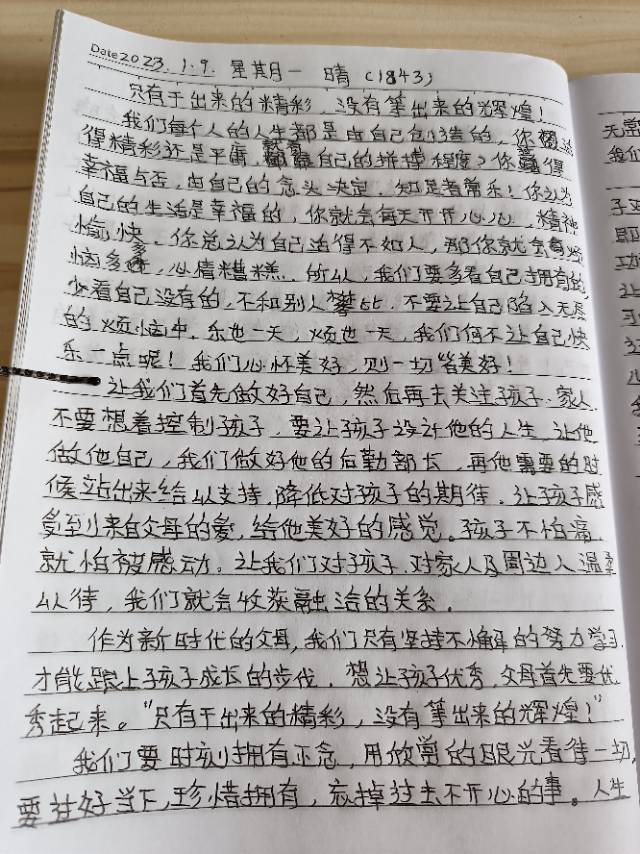 Date 2023.1.9. 星期一 晴 (1843)
只有干出来的精彩，没有等出来的辉煌！
我们每个人的人生都是由自己创造的，你
得精彩还是平庸，自己的拼搏程度？你觉得
幸福与否，由自己的念头决定，知足者常乐！你认为
自己的生活是幸福的，你就会每天开开心心，精神
愉快。你总认为自己活得不如人，那你就会每
恼多多，心情糟糕。所以，我们要多看自己拥有的，
少看自己没有的，不和别人攀比，不要让自己陷入无尽
的烦恼中。乐也一天，烦也一天，我们何不让自己快
乐一点呢！我们心怀美好，则一切皆美好！
让我们首先做好自己，然后再去关注孩子、家人，
不要想着控制孩子，要让孩子设计他的人生，让他
做他自己，我们做好他的后勤部长，再他需要的时
候站出来给以支持，降低对孩子的期待，让孩子感
受到来自父母的爱，给他美好的感觉。孩子不怕痛，
就怕被感动。让我们对孩子、对家人及周边人温柔
以待，我们就会收获融洽的关系。
作为新时代的父母，我们只有坚持不懈的努力学习，
才能跟上孩子成长的步伐，想让孩子优秀，父母首先要优
秀起来。“只有干出来的精彩，没有等出来的辉煌！”
我们要时刻拥有正念，用欣赏的眼光看待一切，
要过好当下，珍惜拥有，忘掉过去不开心的事。人生
天
我们
子
即
功
让